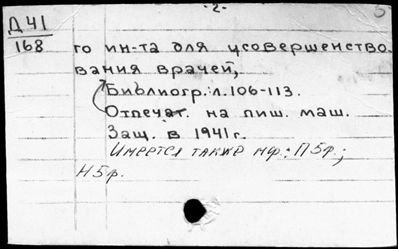 -2-
Д41
168
го ин-та для усовершенство
вания врачей,
Библиогр.: л. 106-113.
Отпечат. на пиш. маш.
Защ. в 1941 г.
Имеется также мф.: П5ф.;
Н5ф.